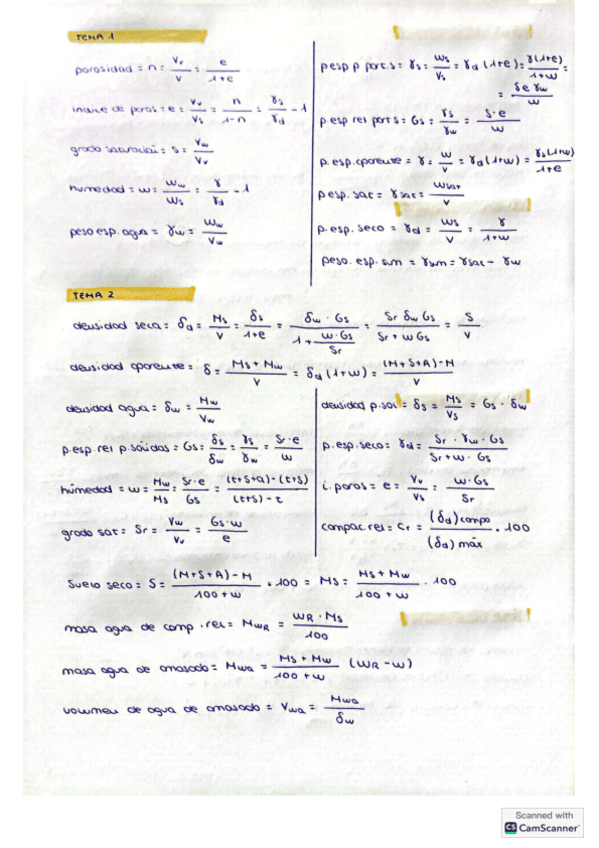 TEMA 1
porosidad = n = Vv/V = e/(1+e)
indice de poros = e = Vv/Vs = n/(1-n) = γs/γd - 1
grado saturación = S = Vw/Vv
humedad = w = Ww/Ws = γ/γd - 1
peso esp. agua = γw = Ww/Vw
p esp p part. s = γs = Ws/Vs = γd (1+e) = γ(1+e)/(1+w) =
= S e γw/w
p esp rel part s = Gs = γs/γw = S·e/w
p. esp. aparente = γ = W/V = γd (1+w) = γs(1+w)/(1+e)
p esp. sat = γsat = Wsat/V
p. esp. seco = γd = Ws/V = γ/(1+w)
peso. esp. sum = γsum = γsat - γw
TEMA 2
densidad seca = δd = Ms/V = δs/(1+e) = δw · Gs/(1 + w·Gs/Sr) = Sr δw Gs/(Sr + w Gs) = S/V
densidad aparente = δ = (Ms + Mw)/V = δd (1+w) = ((M+S+A) - M)/V
densidad agua = δw = Mw/Vw
p. esp. rel p. sólidas = Gs = δs/δw = γs/γw = Sr·e/w
húmedad = w = Mw/Ms = Sr·e/Gs = ((t+s+a) - (t+s))/((t+s) - t)
grado sat = Sr = Vw/Vv = Gs·w/e
densidad p. sol = δs = Ms/Vs = Gs · δw
p. esp. seco = γd = Sr · γw · Gs/(Sr + w · Gs)
i. poros = e = Vv/Vs = w·Gs/Sr
compac. rel = Cr = (δd) campo/(δd) máx · 100
Suelo seco = S = ((M+S+A) - M)/(100 + w) · 100 = Ms = (Ms + Mw)/(100 + w) · 100
masa agua de comp. rel = MwR = wR · Ms/100
masa agua de amasado = Mwa = (Ms + Mw)/(100 + w) (wR - w)
volumen de agua de amasado = Vwa = Mwa/δw
Scanned with
CS CamScanner